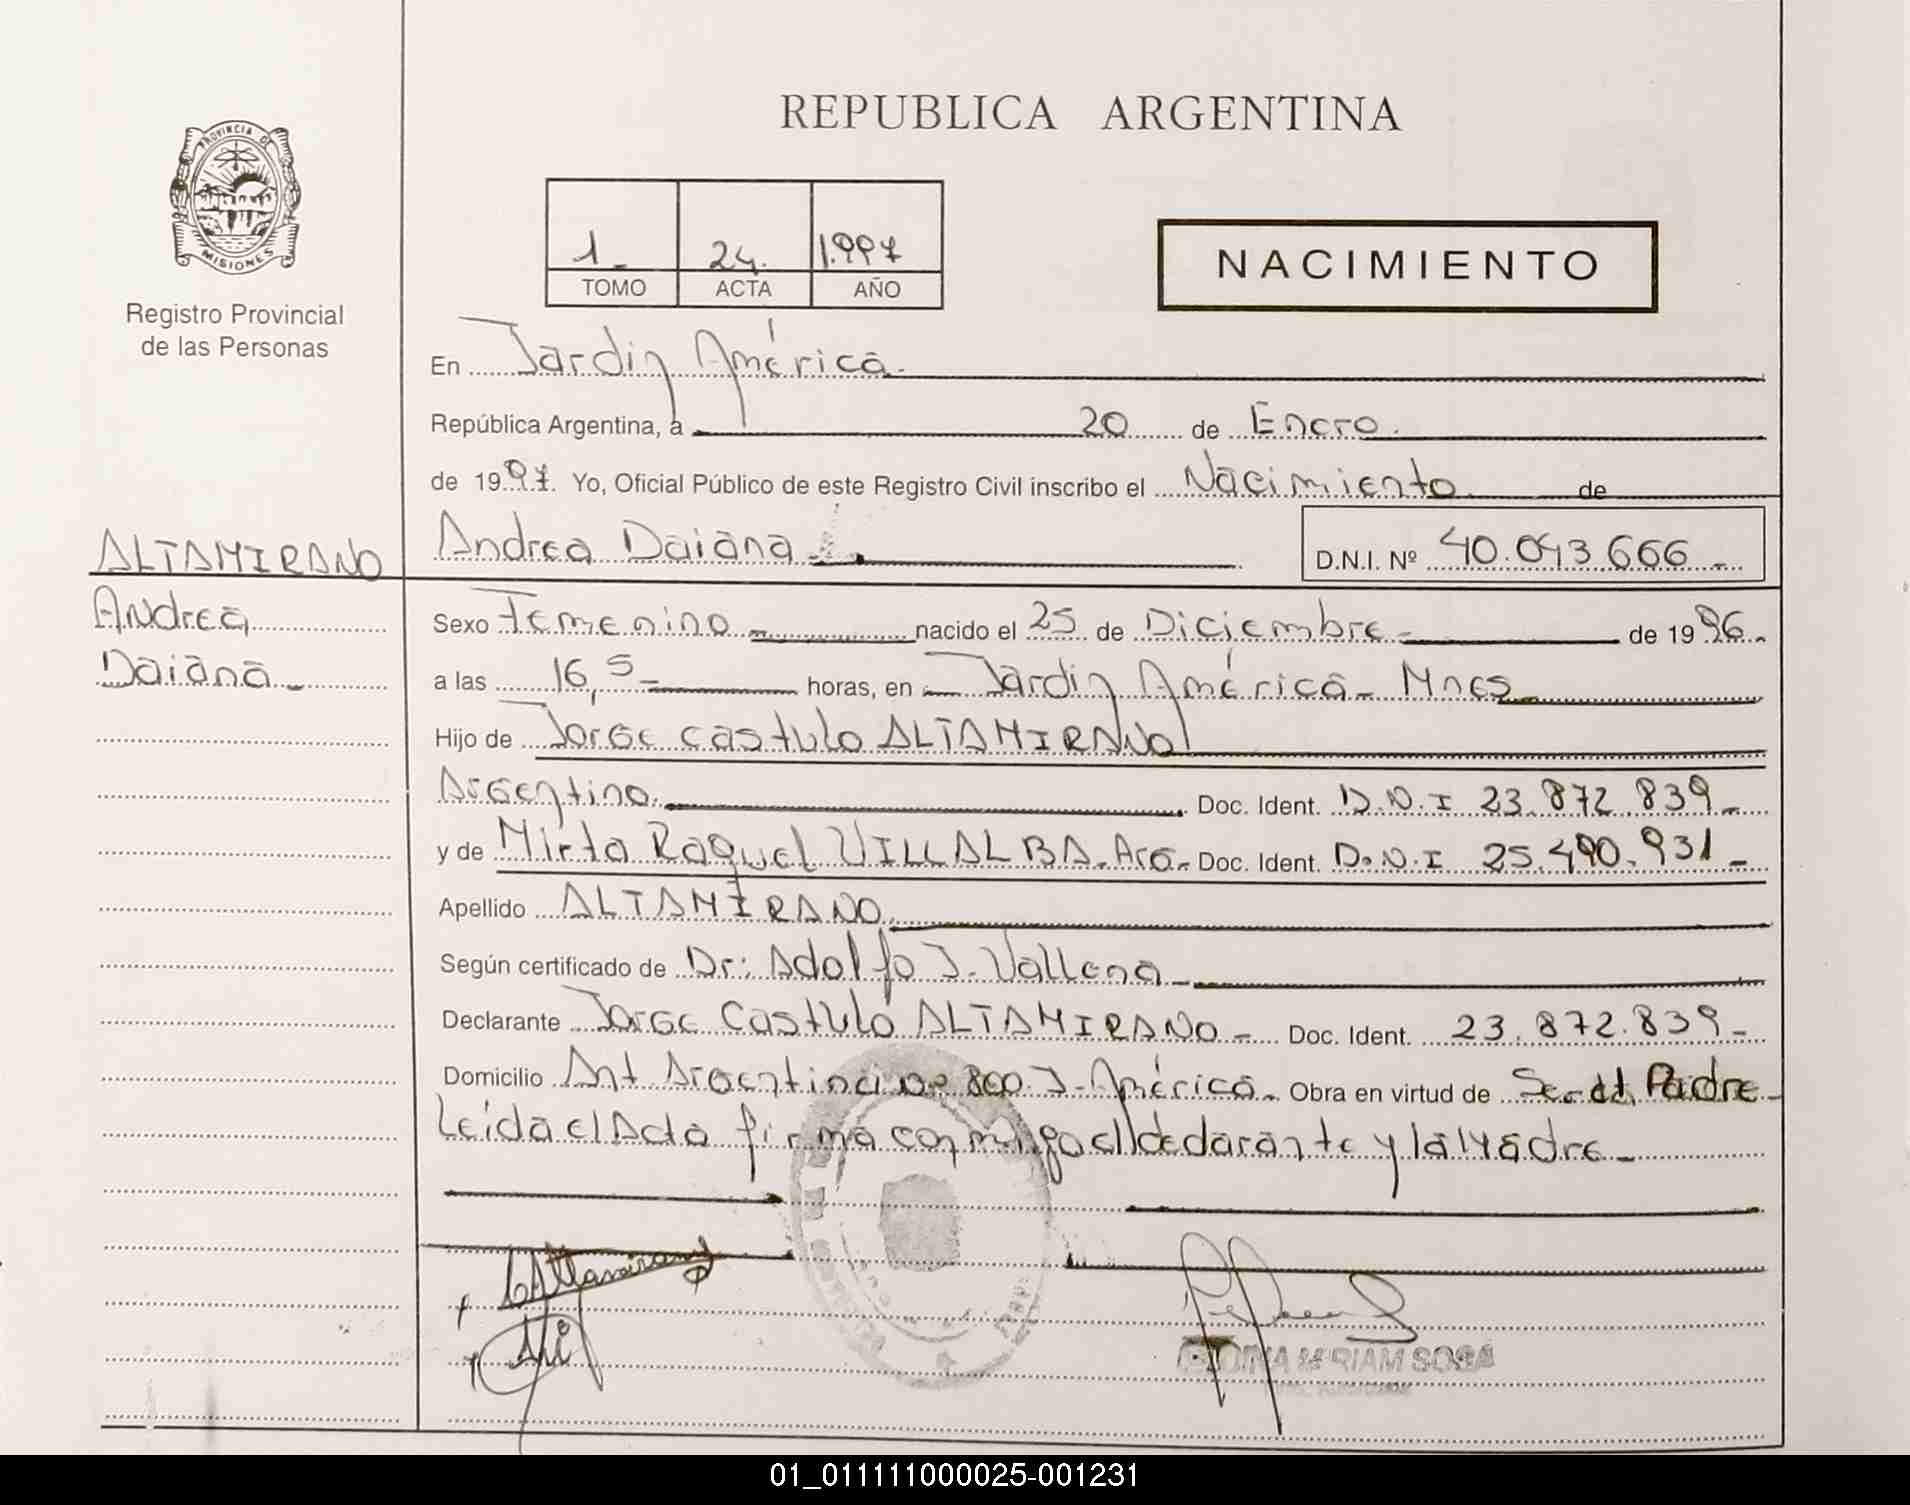 REPUBLICA ARGENTINA
PROVINCIA DE
MISIONES
Registro Provincial
de las Personas
1 24. 1.997
TOMO ACTA AÑO
NACIMIENTO
En Jardin América.
República Argentina, a 20 de Enero.
de 1997. Yo, Oficial Público de este Registro Civil inscribo el Nacimiento de
ALTAMIRANO
Andrea
Daiana
Andrea Daiana D.N.I. Nº 40.043.666
Sexo Femenino nacido el 25 de Diciembre de 1996.
a las 16,5 horas, en Jardin América - Mnes
Hijo de Jorge castulo ALTAMIRANO
Argentino. Doc. Ident. D.N.I 23.872.839
y de Mirta Raquel VILLALBA. Arg. Doc. Ident. D.N.I 25.490.931
Apellido ALTAMIRANO
Según certificado de Dr: Adolfo J. Vallena
Declarante Jorge Castulo ALTAMIRANO Doc. Ident. 23.872.839
Domicilio Ant Argentina 800. J. América. Obra en virtud de Padre
Leida el Acta firma conmigo el declarante y la Madre
MIRIAM SOSA
01_011111000025-001231